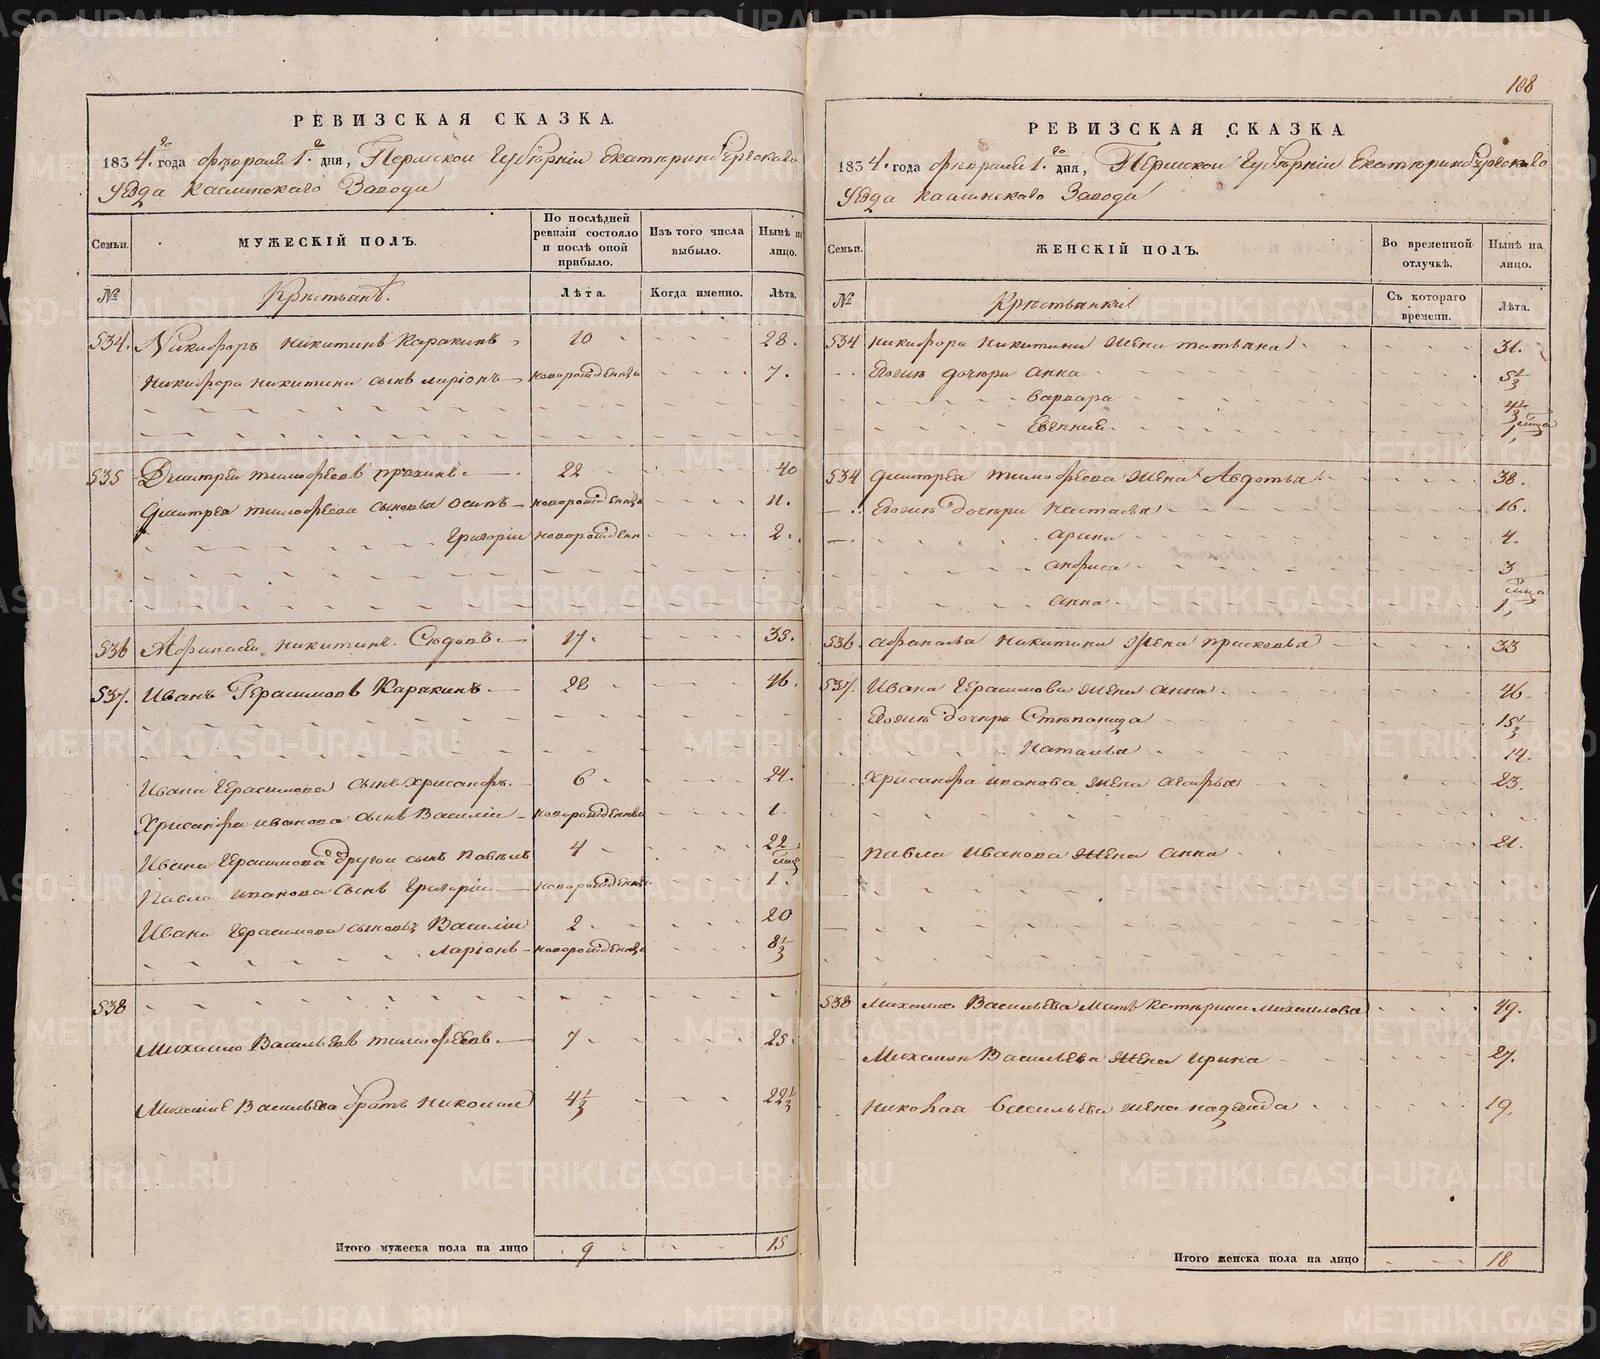 108
РЕВИЗСКАЯ СКАЗКА.
1834.го года февраля 1.го дня, Пермской Губерніи Екатеринбургскаго
Уезда Каслинскаго Завода
Семьи. МУЖЕСКІЙ ПОЛЪ. По послѣдней ревизіи состояло и послѣ оной прибыло. Изъ того числа выбыло. Нынѣ на лицо.
№ Крестьянѣ. Лѣта. Когда именно. Лѣта.
534. Никифоръ Никитинъ Каракинъ 10 28.
Никифора Никитина сынъ Ларіонъ новорожденны 7.
535 Дмитреи Тимофеевъ 22 40
Дмитрея Тимофеева сыновья Осипъ новорожденны 11.
Григорій новорожден 2.
536 Афанасеи Никитинъ 17. 35.
537. Иванъ Герасимовъ Каракинъ 28 46.
Ивана Герасимова сынъ Хрисанфъ. 6 24.
Хрисанфа Иванова сынъ Василіи новорожденны 1.
Ивана Герасимова другои сынъ Павелъ 4 22
Павла Иванова сынъ Григоріи новорожденны 1.
Ивана Герасимова сыновъя Василіи 2 20
Ларіонъ новорожденны 8½
538
Михаило Васильевъ Тимофеевъ 7 25.
Михаила Васильева братъ Николаи 4½ 22½
Итого мужеска пола на лицо 9 15
РЕВИЗСКАЯ СКАЗКА
1834. года февраля 1.го дня, Пермской Губерніи Екатеринбургскаго
Уезда Каслинскаго Завода
Семьи. ЖЕНСКІЙ ПОЛЪ. Во временной отлучкѣ. Нынѣ на лицо.
№ Крестьянки Съ котораго времени. Лѣта.
534 Никифора Никитина жена Татьяна 31.
Евоние дочери Анна 5½
Варвара 4½
Евгения 1
534 Дмитрея Тимофеева жена Авдотья 38.
Евоние дочери Насталья 16.
Арина 4.
Анфиса 3
Анна 1
536. Афанасья Никитина жена Прасковья 33
537. Ивана Герасимова жена Анна 46
Евоние дочери Степанида 15½
Наталья 14.
Хрисанфа Иванова жена Агафья 23.
Павла Иванова жена Анна 21.
538 Михаило Васильева мать Катерина Михаилова 49.
Михаила Васильева жена Ирина 27.
Николая Васильева жена Надежда 19.
Итого женска пола на лицо 18
METRIKI.GASO-URAL.RU